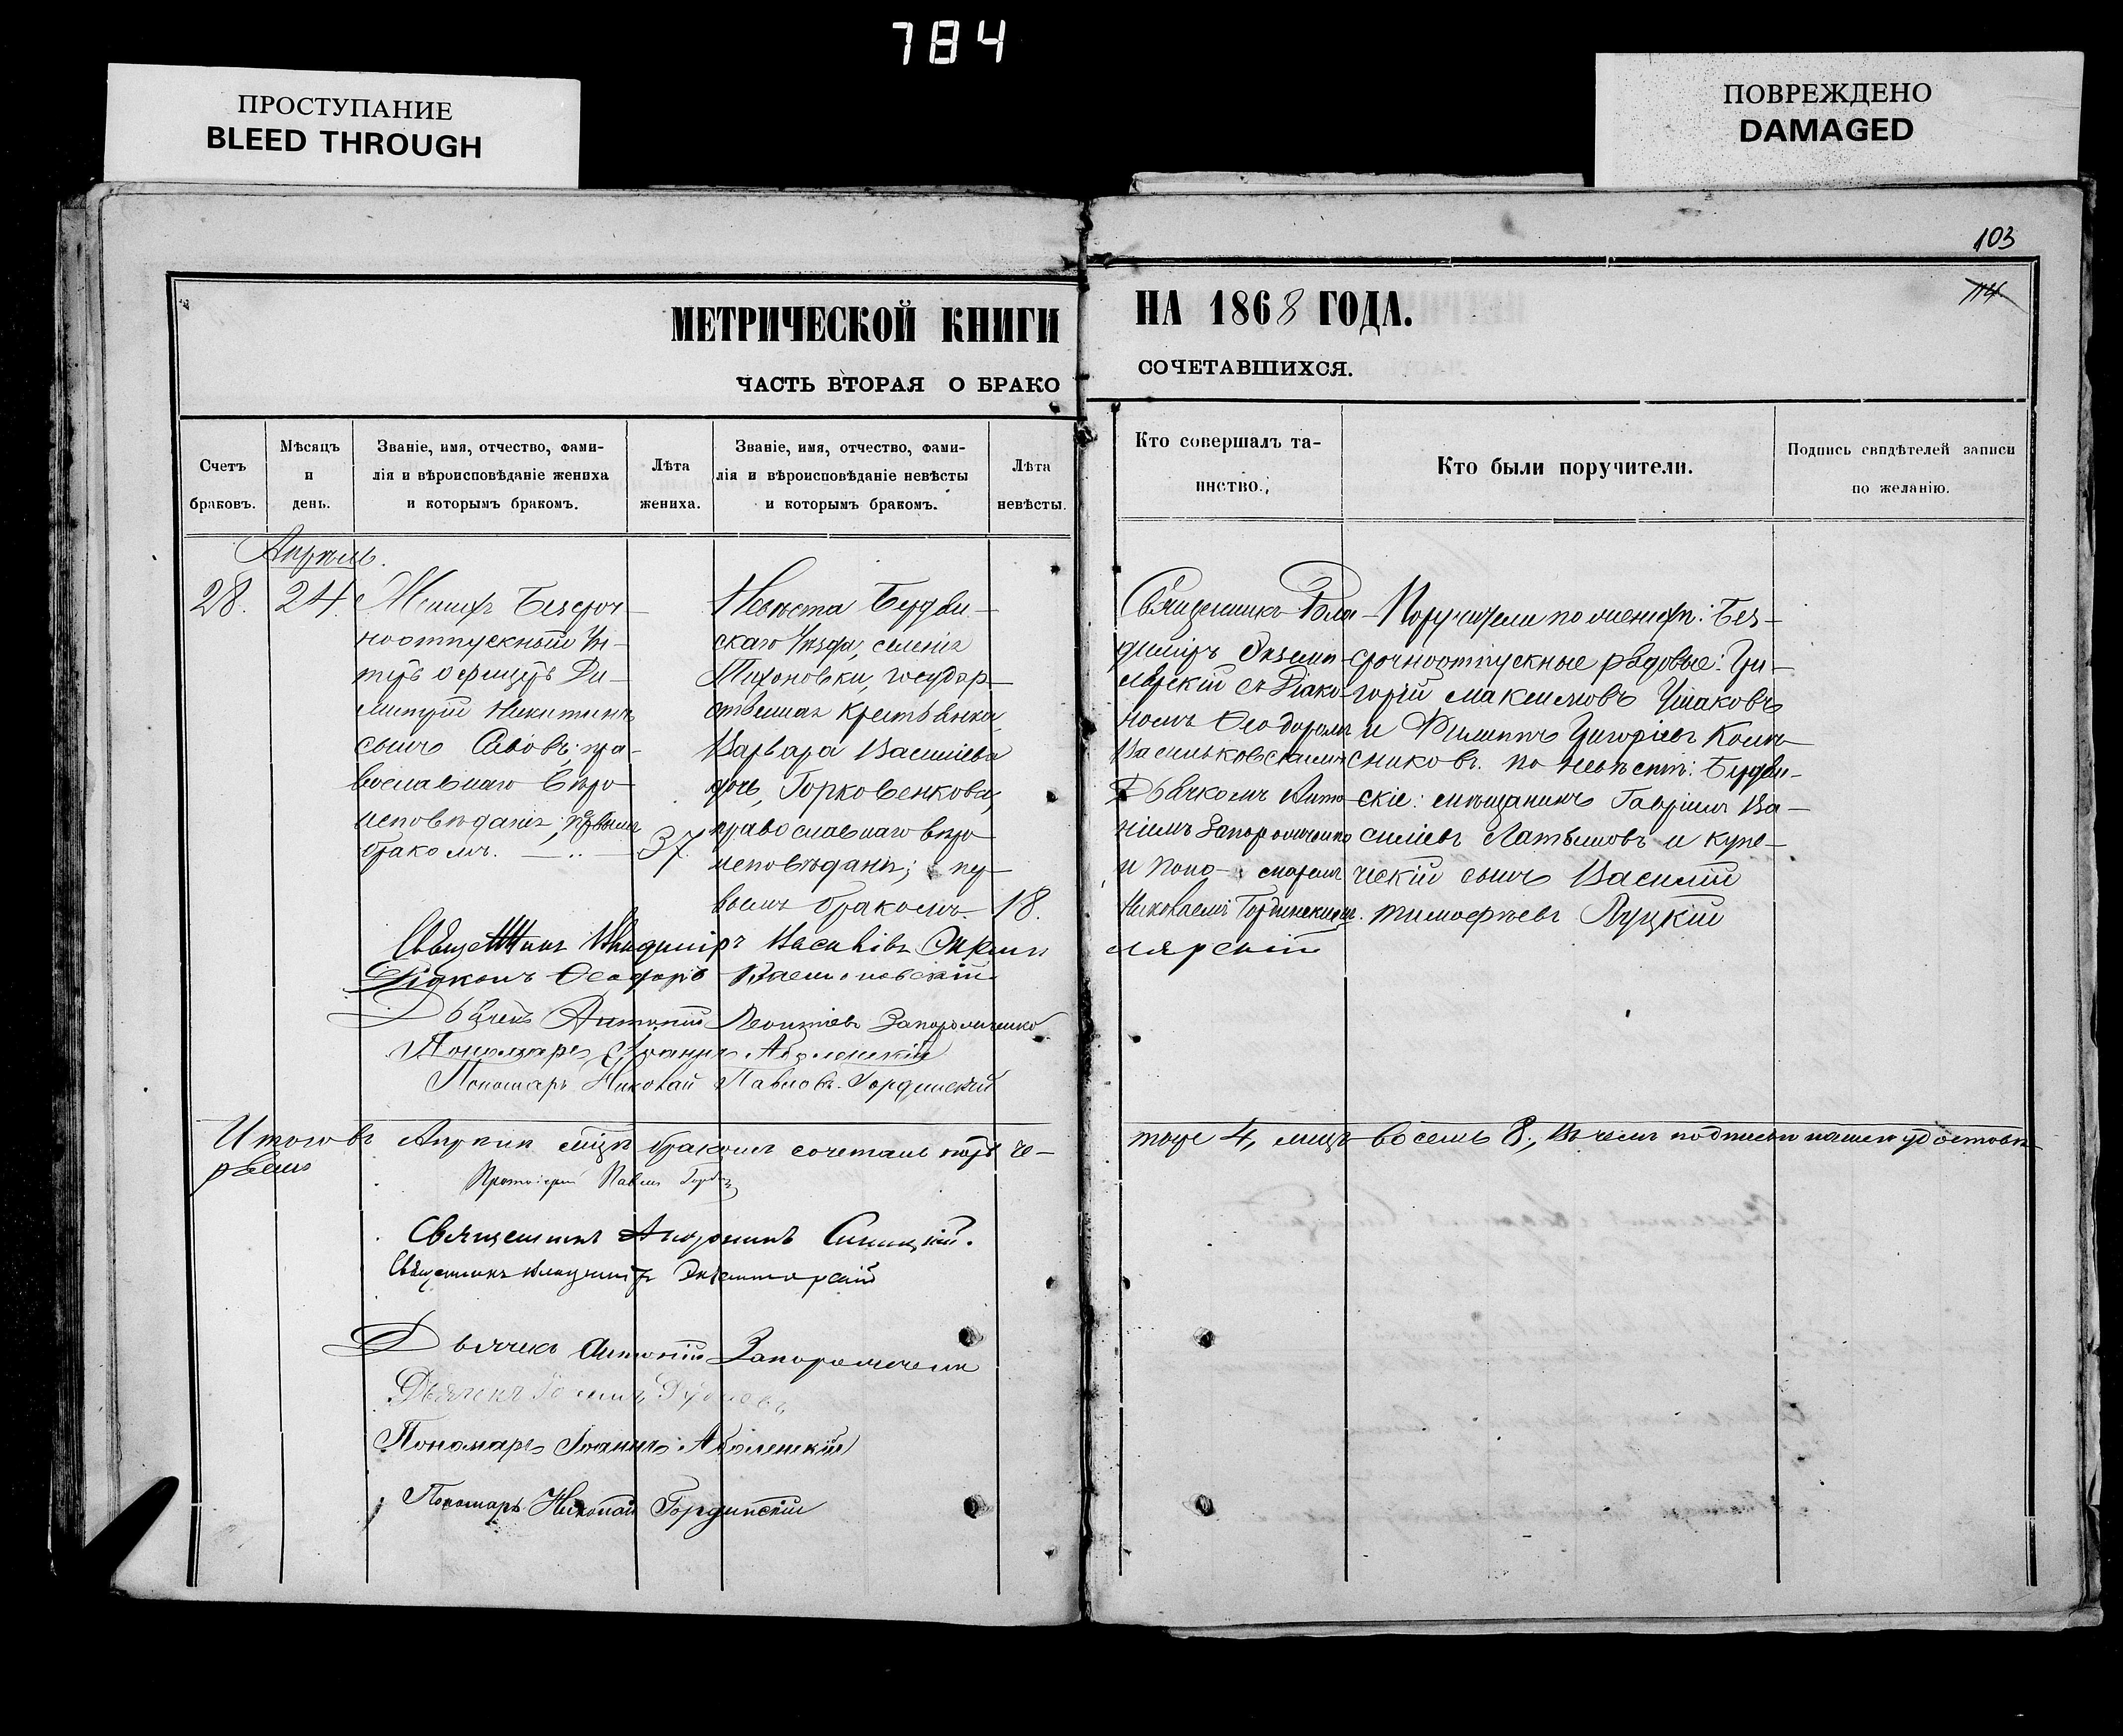 784
ПРОСТУПАНИЕ
BLEED THROUGH
ПОВРЕЖДЕНО
DAMAGED
103
114
МЕТРИЧЕСКОЙ КНИГИ
НА 1868 ГОДА.
ЧАСТЬ ВТОРАЯ О БРАКО
СОЧЕТАВШИХСЯ.
Счетъ
браковъ.
Мѣсяцъ
и
день.
Званіе, имя, отчество, фами-
лія и вѣроисповѣданіе жениха
и которымъ бракомъ.
Лѣта
жениха.
Званіе, имя, отчество, фами-
лія и вѣроисповѣданіе невѣсты
и которымъ бракомъ.
Лѣта
невѣсты.
Кто совершалъ та-
инство.
Кто были поручители.
Подпись свидѣтелей записи
по желанію.
Апрель.
28.
24.
Женихъ Безсроч-
ноотпускный Ун-
теръ офицеръ Ди-
митрій Никитинъ
сынъ Савовъ; пра-
вославнаго вѣро
исповѣданія; первымъ
бракомъ.
37.
Невѣста Бердян-
скаго Уѣзда, селенія
Тихоновки, государ-
ственная крестьянка
Варвара Василіева
дочь, Горковенкова,
православнаго вѣро
исповѣданія; пер-
вымъ бракомъ
18.
Священникъ Вла-
диміръ Экземп-
лярскій съ Діако-
номъ Ѳеодоромъ
Васильковскимъ
Дьячкомъ Анто-
ніемъ Запорожченко
и Поно-марем
Николаемъ Гординскимъ.
Поручители по женихѣ: Без-
срочноотпускные рядовые: Гри-
горій Максимовъ Ушаковъ
и Филиппъ Григоріевъ Колѣ-
сниковъ. по невѣстѣ: Бердян-
скіе: мѣщанинъ Гавріилъ Ва-
силіевъ Латышовъ и купе-
ческій сынъ Василій
Тимофѣевъ Луцкій
Священникъ Владиміръ Васильевъ Экземп
лярскій
Діаконъ Ѳеодоръ Васильковскій
Дьячекъ Антоній Леонтіевъ Запорожченко
Пономарь Іоаннъ Аболенскій
Пономарь Николай Павловъ Гординскій
Итого въ Апрелѣ мцѣ бракомъ сочетано паръ че-
тыре 4, лицъ восемь 8., въ чемъ подписью нашею удостовѣ-
ряемъ
Протоіерей Павелъ
Священникъ Андроникъ Синицкій.
Священникъ Владиміръ Экземплярскій
Дьячекъ Антоній Запорожченко
Дьячекъ
Пономарь Іоаннъ Аболенскій
Пономарь Николай Гординскій